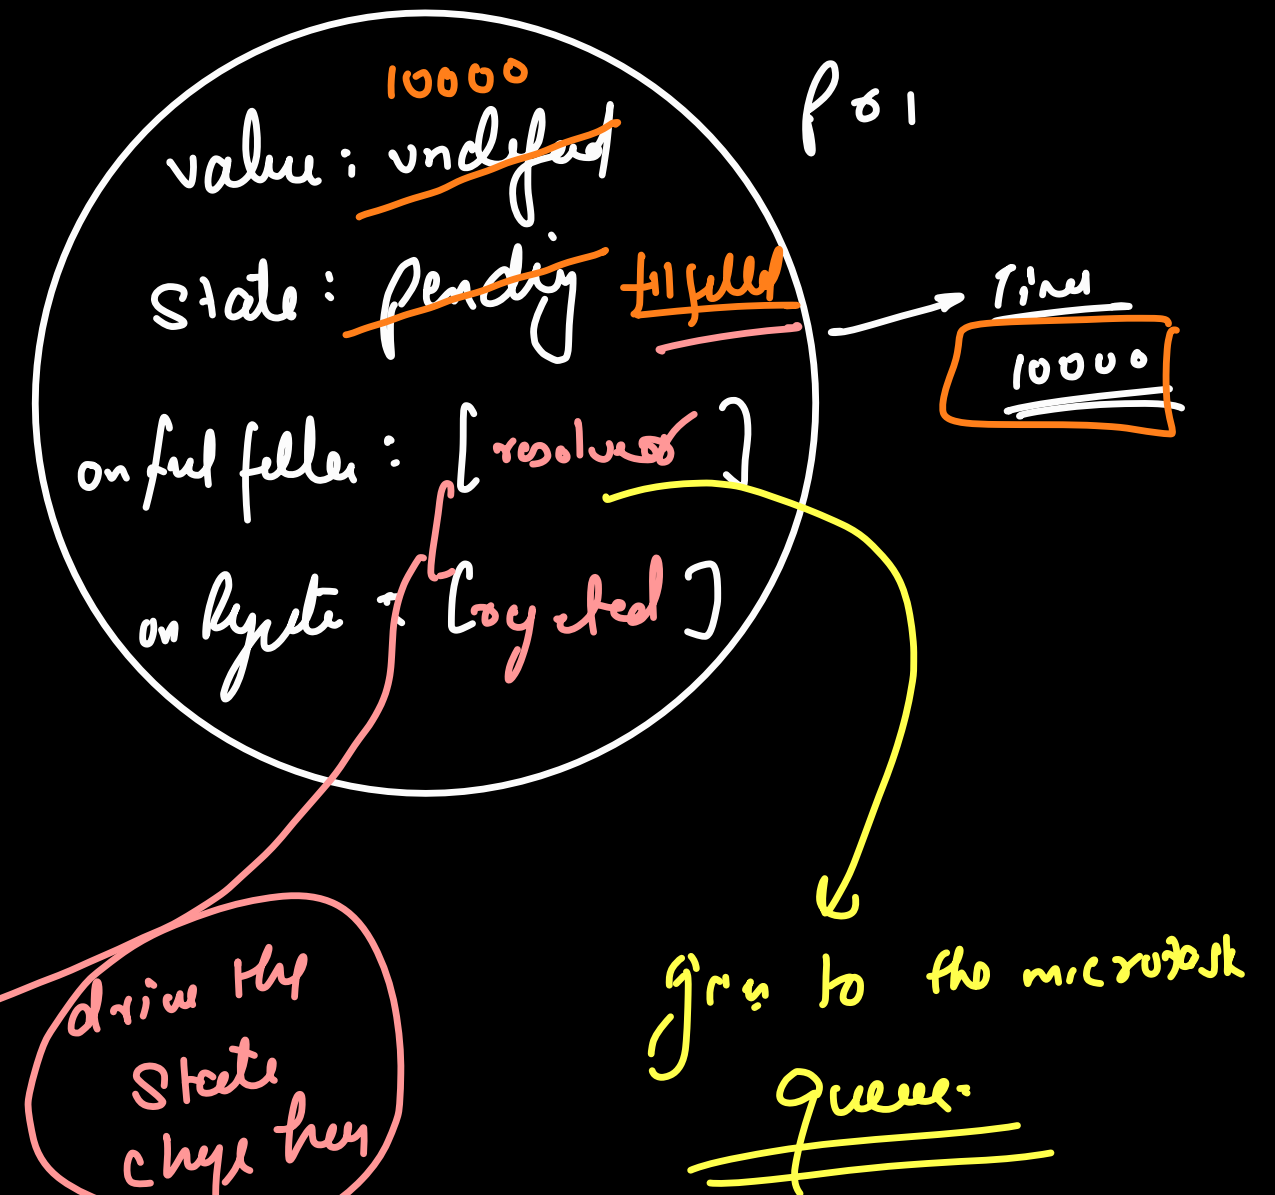 10000
value: undefined
state: pending fulfilled
onfulfilled: [resolver]
on : [rejected]
Timer
10000
drive the
state
change
given to the microtask
Queue.